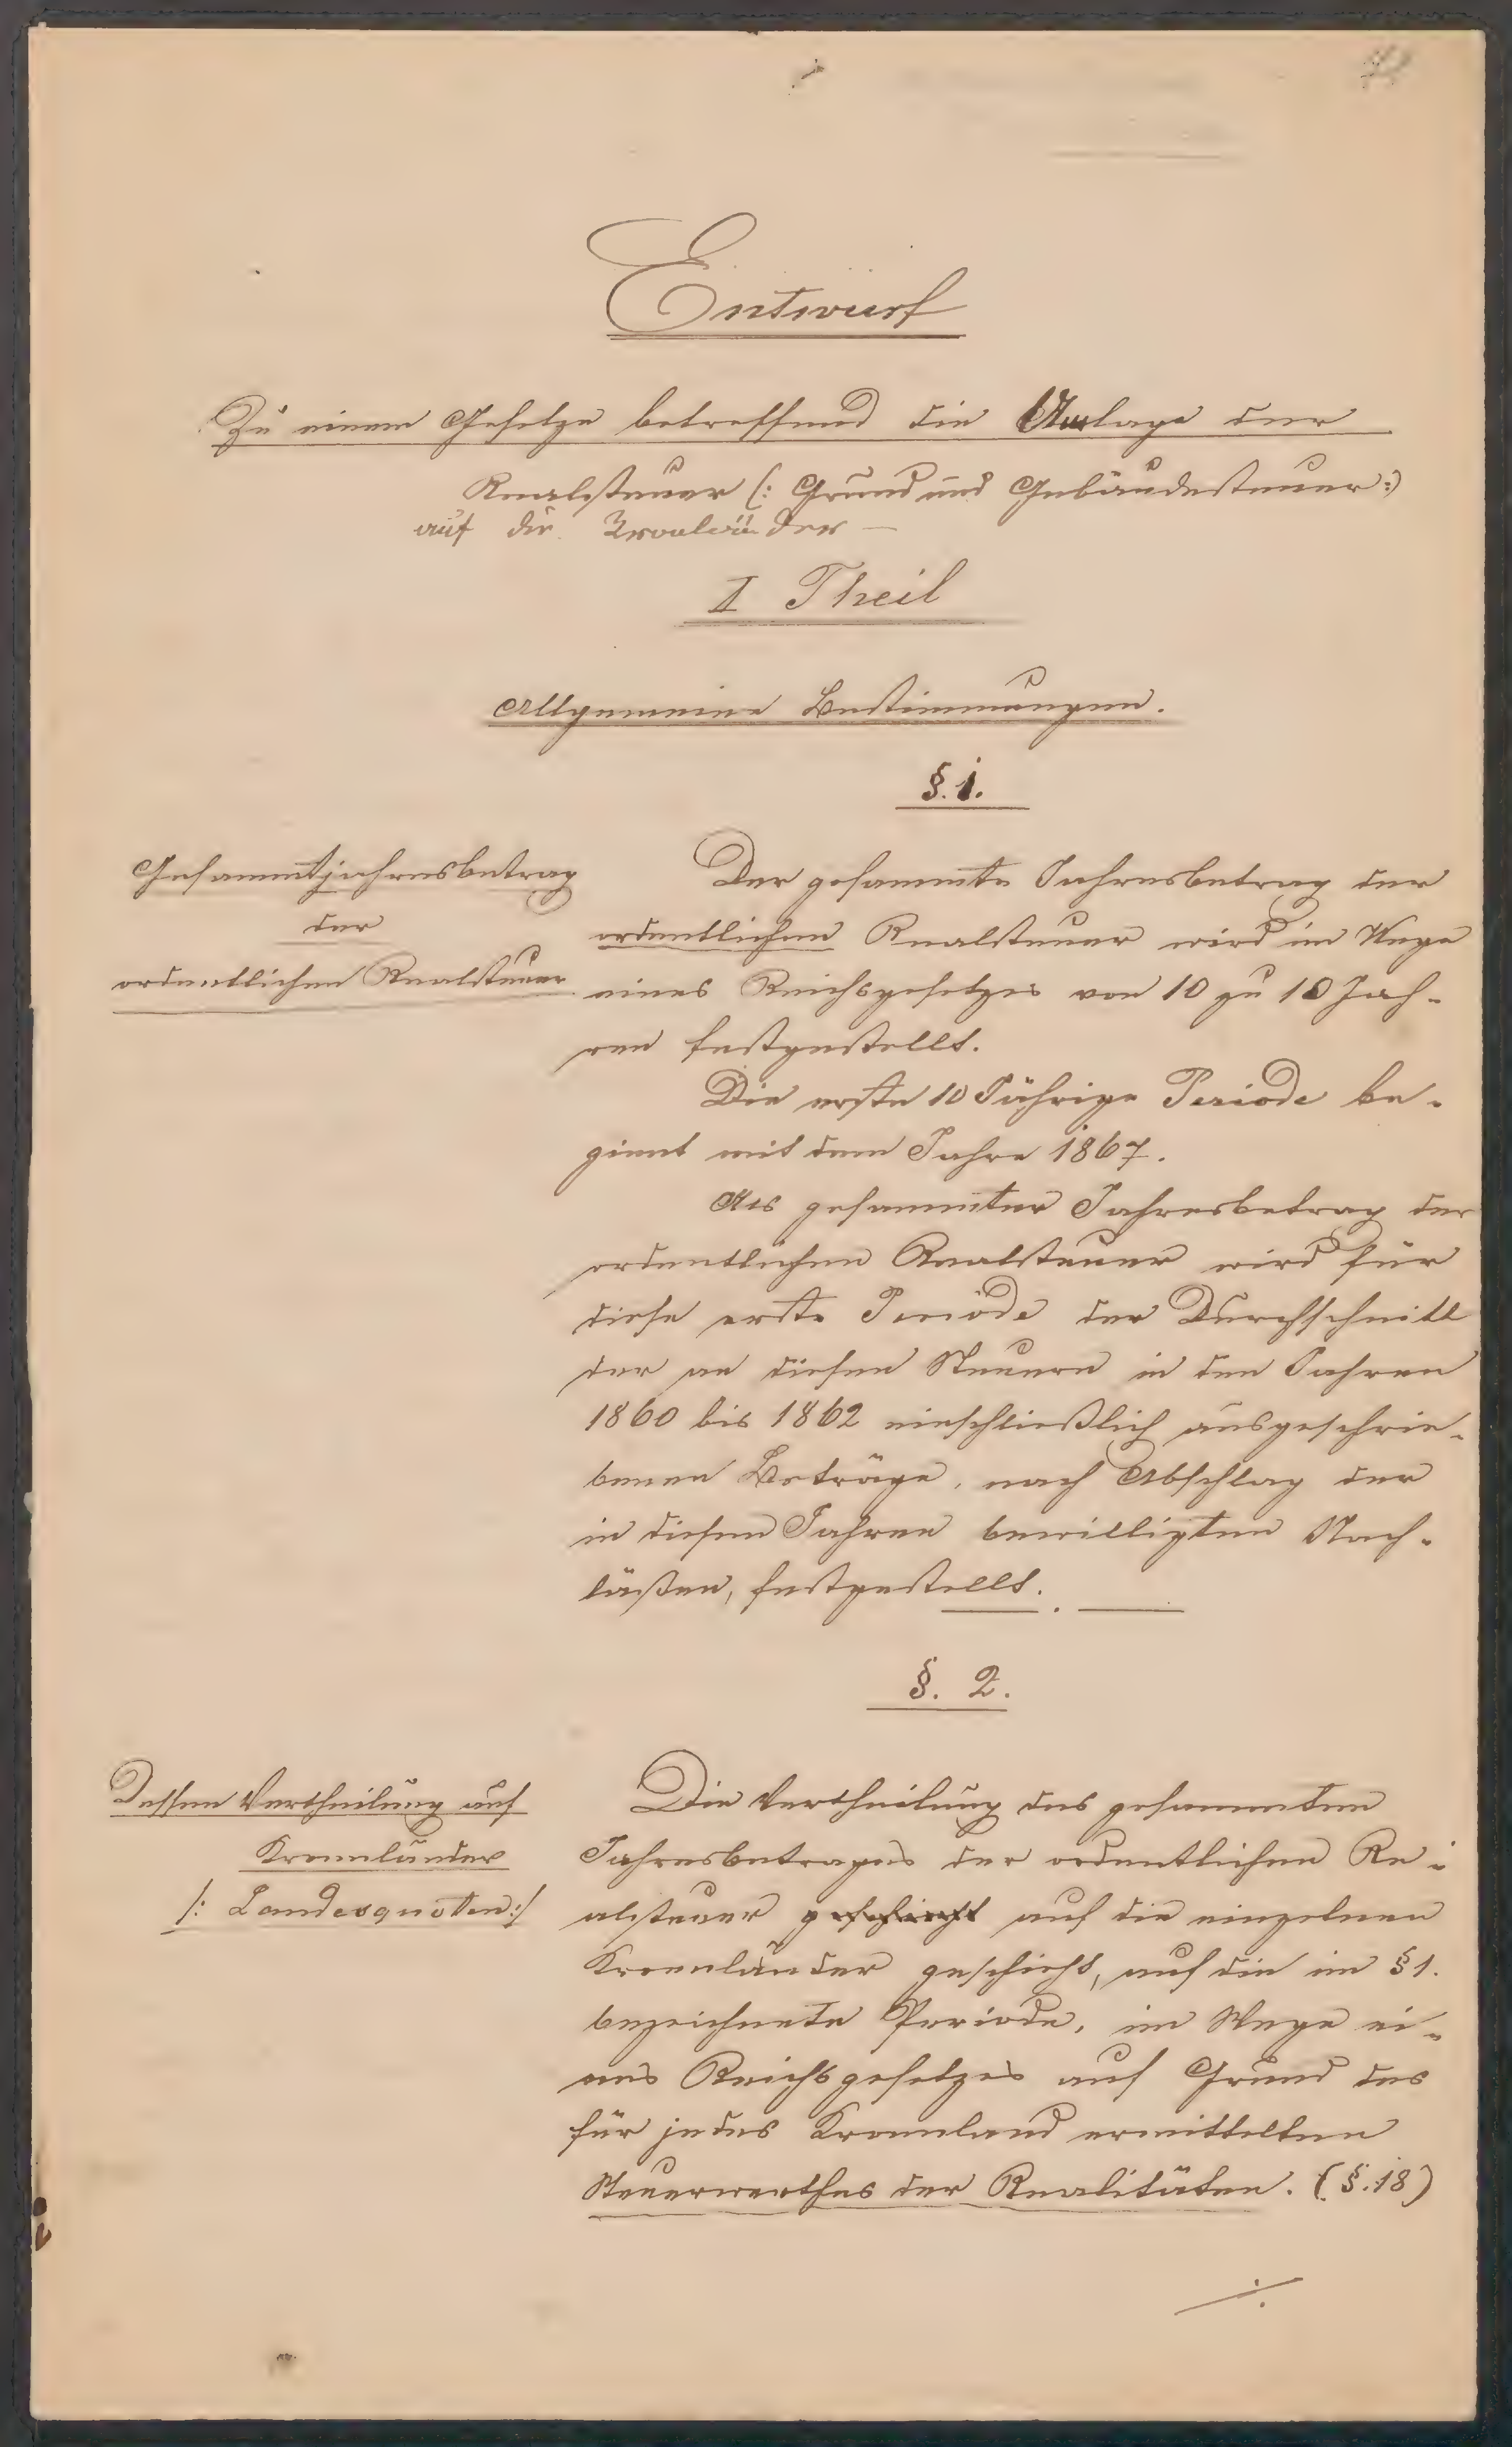 Entwurf
Zu einem Gesetze betreffend die Umlage der
Realsteuer (: Grund und Gebäudesteuer :)
auf die Kronländer —
I Theil
Allgemeine Bestimmungen.
§. 1.
Gesammtjahresbetrag
der
ordentlichen Realsteuer
Der gesammte Jahresbetrag der
ordentlichen Realsteuer wird im Wege
eines Reichsgesetzes von 10 zu 10 Jah-
ren festgestellt.
Die erste 10 Jährige Periode be-
ginnt mit dem Jahre 1867.
Als gesammter Jahresbetrag der
ordentlichen Realsteuer wird für
diese erste Periode der Durchschnitt
der an diesen Steuern in den Jahren
1860 bis 1862 einschließlich ausgeschrie-
benen Beträge, nach Abschlag der
in diesen Jahren bewilligten Nach-
läßen, festgestellt.
§. 2.
Dessen Vertheilung auf
Kronländer
/: Landesquoten :/
Die Vertheilung des gesammten
Jahresbetrages der ordentlichen Re-
alsteuer geschieht auf die einzelnen
Kronländer geschieht, auf die im § 1.
bezeichnete Periode, im Wege ei-
nes Reichsgesetzes auf Grund des
für jedes Kronland ermittelten
Steuerwerthes der Realitäten. (§. 18)
./.